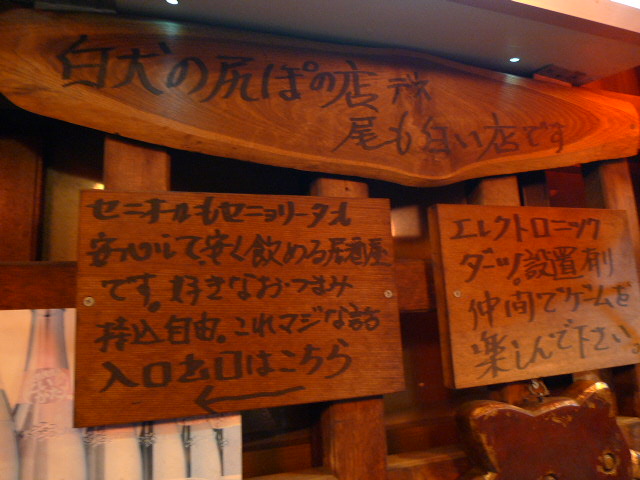 白犬の尻ぽの店
尾も白い店です
セニョールもセニョリータも
安心して、安く飲める居酒屋
です。好きなおつまみ
持込自由。これマジな話
入口出口はこちら
エレクトロニック
ダーツ設置
仲間でゲームを
楽しんで下さい。